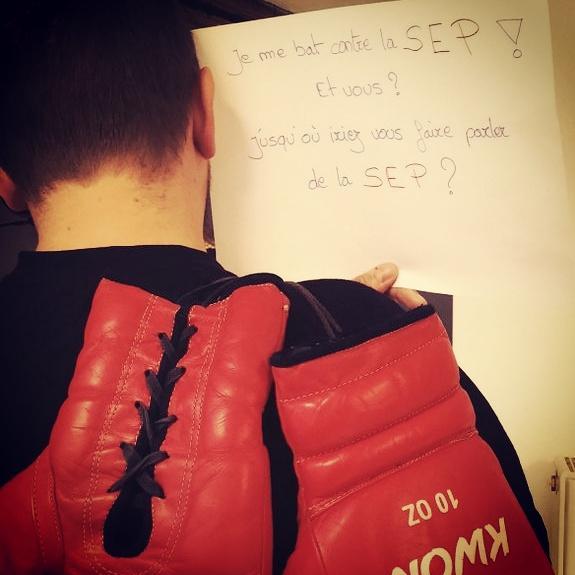 Je me bat contre la SEP !
Et vous ?
jusqu'où iriez vous faire parler
de la SEP ?
10 OZ
KWON